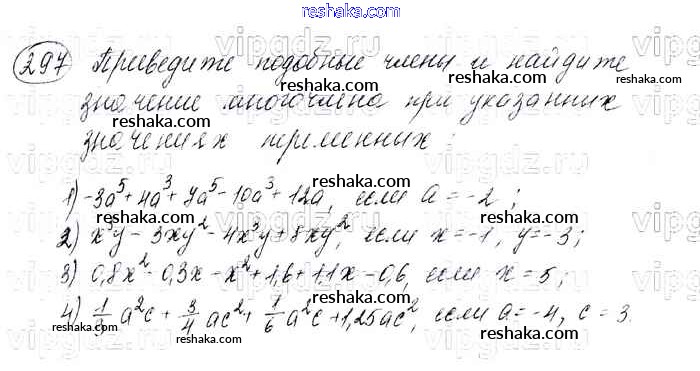 reshaka.com
297 Приведите подобные члены и найдите
значение многочлена при указанных
значениях переменных:
1) -3a⁵+4a³+7a⁵-10a³+12a, если a=-2;
2) x³y-3xy²-4x³y+8xy², если x=-1, y=-3;
3) 0,8x²-0,3x-x²+1,6+1,1x-0,6, если x=5;
4) 1/3 a²c + 3/4 ac² + 1/6 a²c + 1,25ac², если a=-4, c=3.
vipgdz.ru
reshaka.com